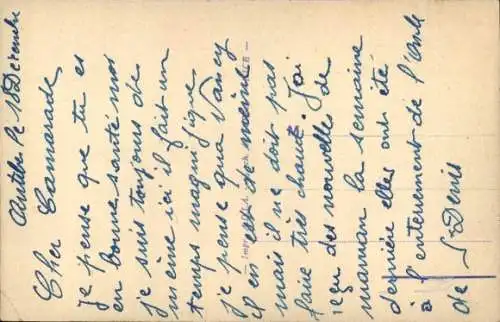 Antibes le 18 Décembre
Cher Camarade
je pense que tu es
en bonne santé moi
je suis toujours de
même ici il fait un
temps magnifique
je pense qua Nancy
il en est de même
mais il ne doit pas
faire très chaud. J'ai
reçu des nouvelles de
maman la semaine
dernière elles ont été
à l'enterrement de l'oncle
de St Denis